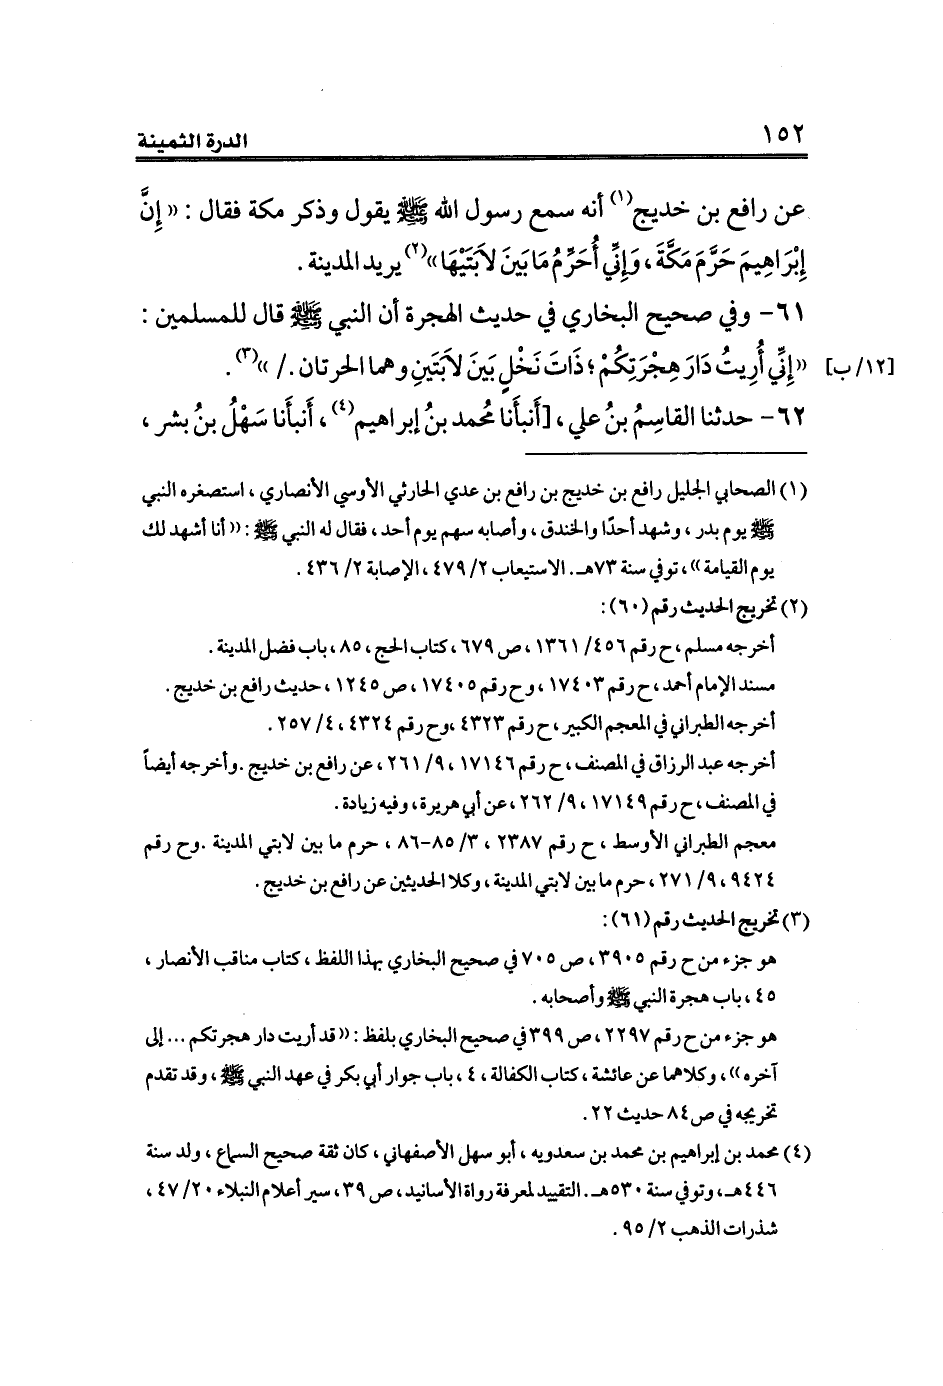 ١٥٢ الدرة الثمينة
عن رافع بن خديج(١) أنه سمع رسول الله ﷺ يقول وذكر مكة فقال : «إِنَّ
إِبْرَاهِيمَ حَرَّمَ مَكَّةَ ، وَإِنِّي أُحَرِّمُ مَا بَينَ لاَبَتَيْهَا»(٢) يريد المدينة .
٦١- وفي صحيح البخاري في حديث الهجرة أن النبي ﷺ قال للمسلمين :
«إِنِّي أُرِيتُ دَارَ هِجْرَتِكُمْ ؛ ذَاتَ نَخْلٍ بَينَ لاَبَتَينِ وهما الحرتان ./ »(٣). [١٢/ ب]
٦٢- حدثنا القاسِمُ بنُ علي ، [أنبأنا محُمد بنُ إبراهيم(٤) ، أنبأنا سَهْلُ بنُ بشر ،
(١) الصحابي الجليل رافع بن خديج بن رافع بن عدي الحارثي الأوسي الأنصاري ، استصغره النبي
ﷺ يوم بدر ، وشهد أحدًا والخندق ، وأصابه سهم يوم أحد ، فقال له النبي ﷺ : «أنا أشهد لك
يوم القيامة» ، توفي سنة ٧٣هـ. الاستيعاب ٢/ ٤٧٩ ، الإصابة ٢/ ٤٣٦ .
(٢) تخريج الحديث رقم (٦٠):
أخرجه مسلم ، ح رقم ٤٥٦/ ١٣٦١ ، ص ٦٧٩ ، كتاب الحج ، ٨٥ ، باب فضل المدينة .
مسند الإمام أحمد ، ح رقم ١٧٤٠٣ ، وح رقم ١٧٤٠٥ ، ص ١٢٤٥ ، حديث رافع بن خديج .
أخرجه الطبراني في المعجم الكبير ، ح رقم ٤٣٢٣ ،وح رقم ٤٣٢٤ ، ٤/ ٢٥٧ .
أخرجه عبد الرزاق في المصنف ، ح رقم ١٧١٤٦ ، ٩/ ٢٦١ ، عن رافع بن خديج .وأخرجه أيضاً
في المصنف ، ح رقم ١٧١٤٩ ، ٩/ ٢٦٢ ، عن أبي هريرة ، وفيه زيادة .
معجم الطبراني الأوسط ، ح رقم ٢٣٨٧ ، ٣/ ٨٥-٨٦ ، حرم ما بين لابتي المدينة .وح رقم
٩٤٢٤ ، ٩/ ٢٧١ ، حرم ما بين لابتي المدينة ، وكلا الحديثين عن رافع بن خديج .
(٣) تخريج الحديث رقم (٦١):
هو جزء من ح رقم ٣٩٠٥ ، ص ٧٠٥ في صحيح البخاري بهذا اللفظ ، كتاب مناقب الأنصار ،
٤٥ ، باب هجرة النبي ﷺ وأصحابه .
هو جزء من ح رقم ٢٢٩٧ ، ص ٣٩٩ في صحيح البخاري بلفظ : «قد أريت دار هجرتكم ... إلى
آخره» ، وكلاهما عن عائشة ، كتاب الكفالة ، ٤ ، باب جوار أبي بكر في عهد النبي ﷺ ، وقد تقدم
تخريجه في ص ٨٤ حديث ٢٢ .
(٤) محمد بن إبراهيم بن محمد بن سعدويه ، أبو سهل الأصفهاني ، كان ثقة صحيح السماع ، ولد سنة
٤٤٦هـ ، وتوفي سنة ٥٣٠هـ. التقييد لمعرفة رواة الأسانيد ، ص ٣٩ ، سير أعلام النبلاء ٢٠/ ٤٧ ،
شذرات الذهب ٢/ ٩٥ .